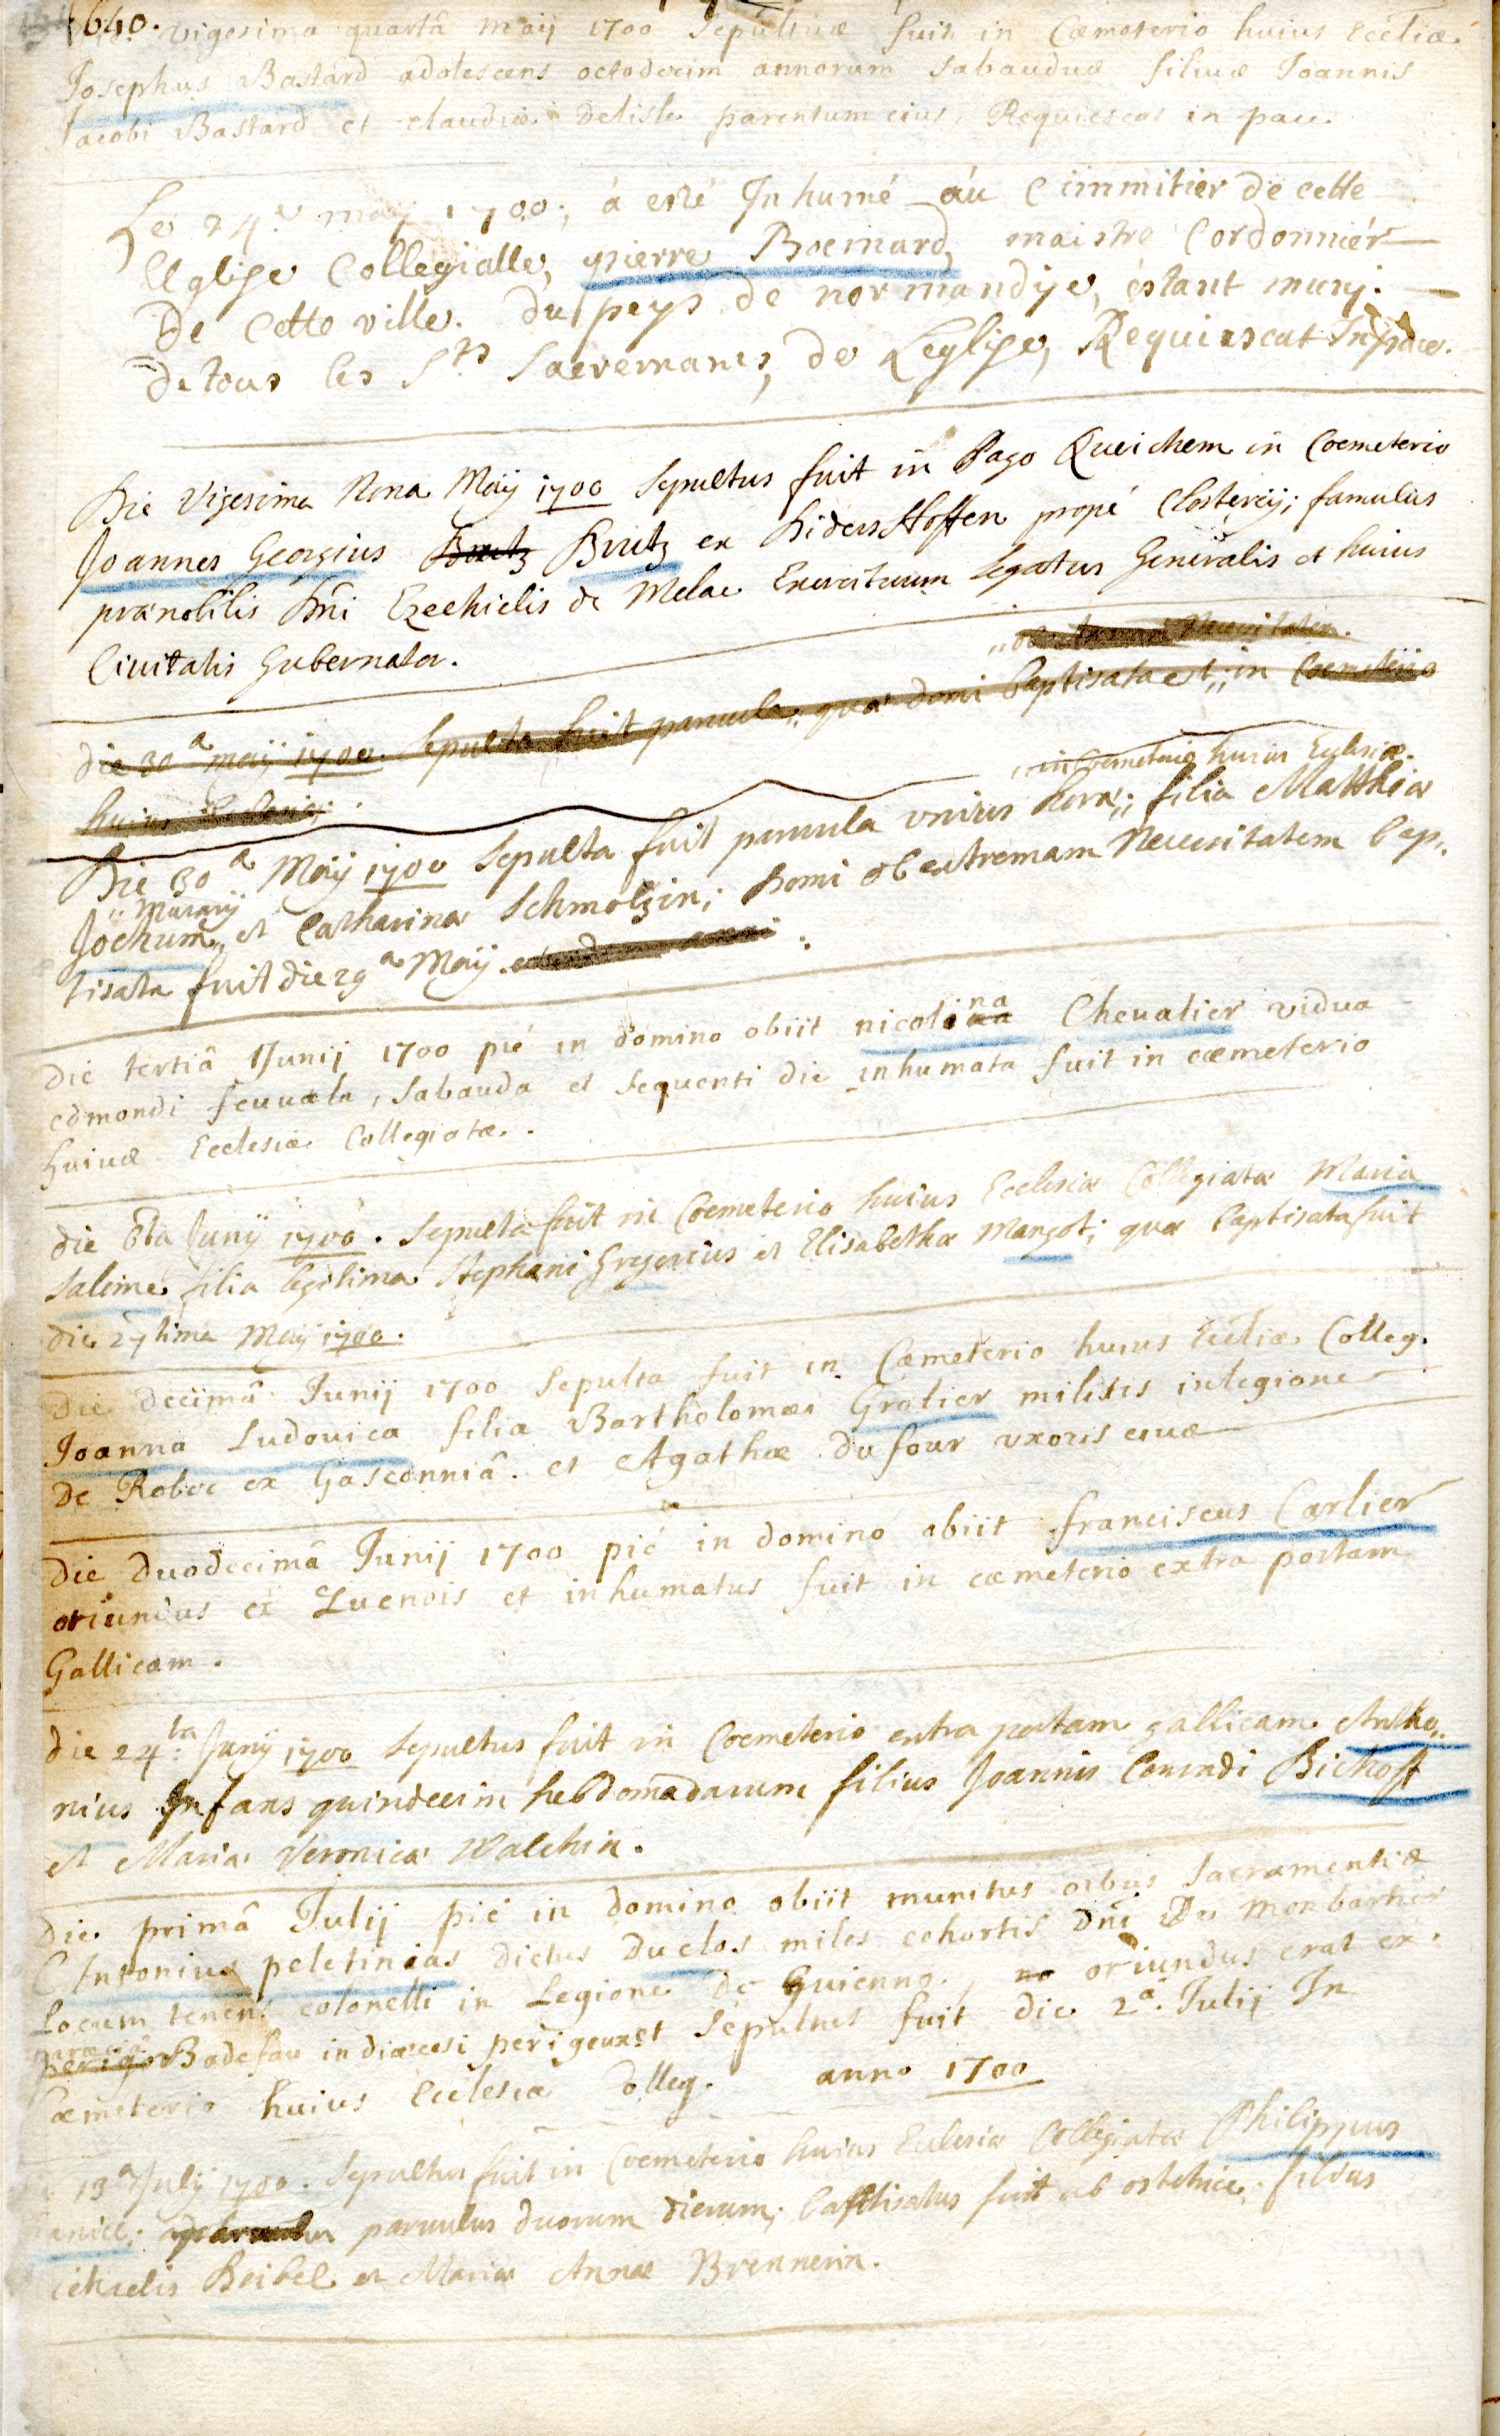 640.
vigesima quartâ maij 1700 Sepultus fuit in Cæmeterio huius Eccliæ
Josephus Bastard adolescens octodecim annorum Sabaudus filius Joannis
Jacobi Bastard et claudiæ delisle parentum eius, Requiescat in pace.
Le 24.e may 1700; á esté Inhumé áu Cimmitier de cette
Eglise Collegialle, pierre Boemard, maistre Cordonniér
De Cette ville. Du peys de normandye, éstant muny.
de tous les Sts Sacremants, de Leglise, Requiescat In pace.
Die Vigesima Nona Maÿ 1700 Sepultus fuit in Pago Queichem in Coemeterio
Joannes Georgius Brutz ex Biderstoffen propé Closterÿ; famulus
prænobilis Dni Ezechielis de Melac Exercituum legatus Generalis et huius
Civitatis Gubernator.
,,ob extremam Necessitatem.
die 30a maÿ 1700. Sepulta fuit parvula,, quæ domi baptisata est,, in Coemeterio
huius Ecclesiæ.
,, in Coemeterio huius Ecclesiæ.
Die 30a Maÿ 1700 Sepulta fuit parvula unius horæ,; filia Matthiæ
,, Murarÿ
Jochum,, et Catharinæ Schmolzin; Domi ob extremam Necessitatem bap,,
tisata fuit die 29a Maÿ.
Die tertiâ Junij 1700 pié in domino obiit nicolina Chevalier vidua
edmondi feuvala, Sabauda et sequenti die inhumata fuit in cæmeterio
huius Ecclesiæ Collegiatæ.
die 6ta Junÿ 1700. Sepulta fuit in Coemeterio huius Ecclesiæ Collegiatæ Maria
Salome filia legitima Stephani Gregorius et Elisabethæ Mangot; quæ baptisata fuit
die 27tima Maÿ 1700.
Die decimâ Junij 1700 Sepulta fuit in Cæmeterio huius Eccliæ Colleg.
Joanna Ludovica filia Bartholomæi Grolier militis in legione
de Robec ex Gasconniâ. et Agathæ dufour uxoris eius
Die duodecimâ Junij 1700 pié in domino obiit franciscus Carlier
oriundus ex Luenois et inhumatus fuit in cæmeterio extra portam
Gallicam.
die 24:ta Junÿ 1700 Sepultus fuit in Coemeterio extra portam gallicam Antho,,
nius Infans quindecim hebdomadarum filius Joannis Conradi Bickoff
et Mariæ Veronicæ Walchin.
Die primâ Julij pié in domino obiit munitus oibus Sacramentis
Antonius peletingas dictus duclos miles cohortis Dni De Monbartier
Locum tenens colonelli in Legione de Guienne, oriundus erat ex
Badefau in diœcesi perigeux et Sepultus fuit die 2a. Julij In
Cæmeterio huius Ecclesiæ Colleg. anno 1700
13a Julÿ 1700. Sepultus fuit in Coemeterio huius Ecclesiæ Collegiatæ Philippus
parvulus duorum dierum; baptisatus fuit ab ostetrice; filius
Beibel et Mariæ Annæ Brennerin.